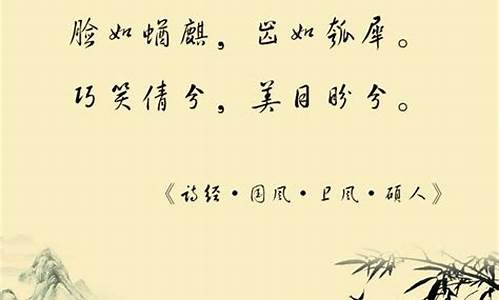 脸如蝤麒，齿如瓠犀。
巧笑倩兮，美目盼兮。
《诗经·国风·卫风·硕人》